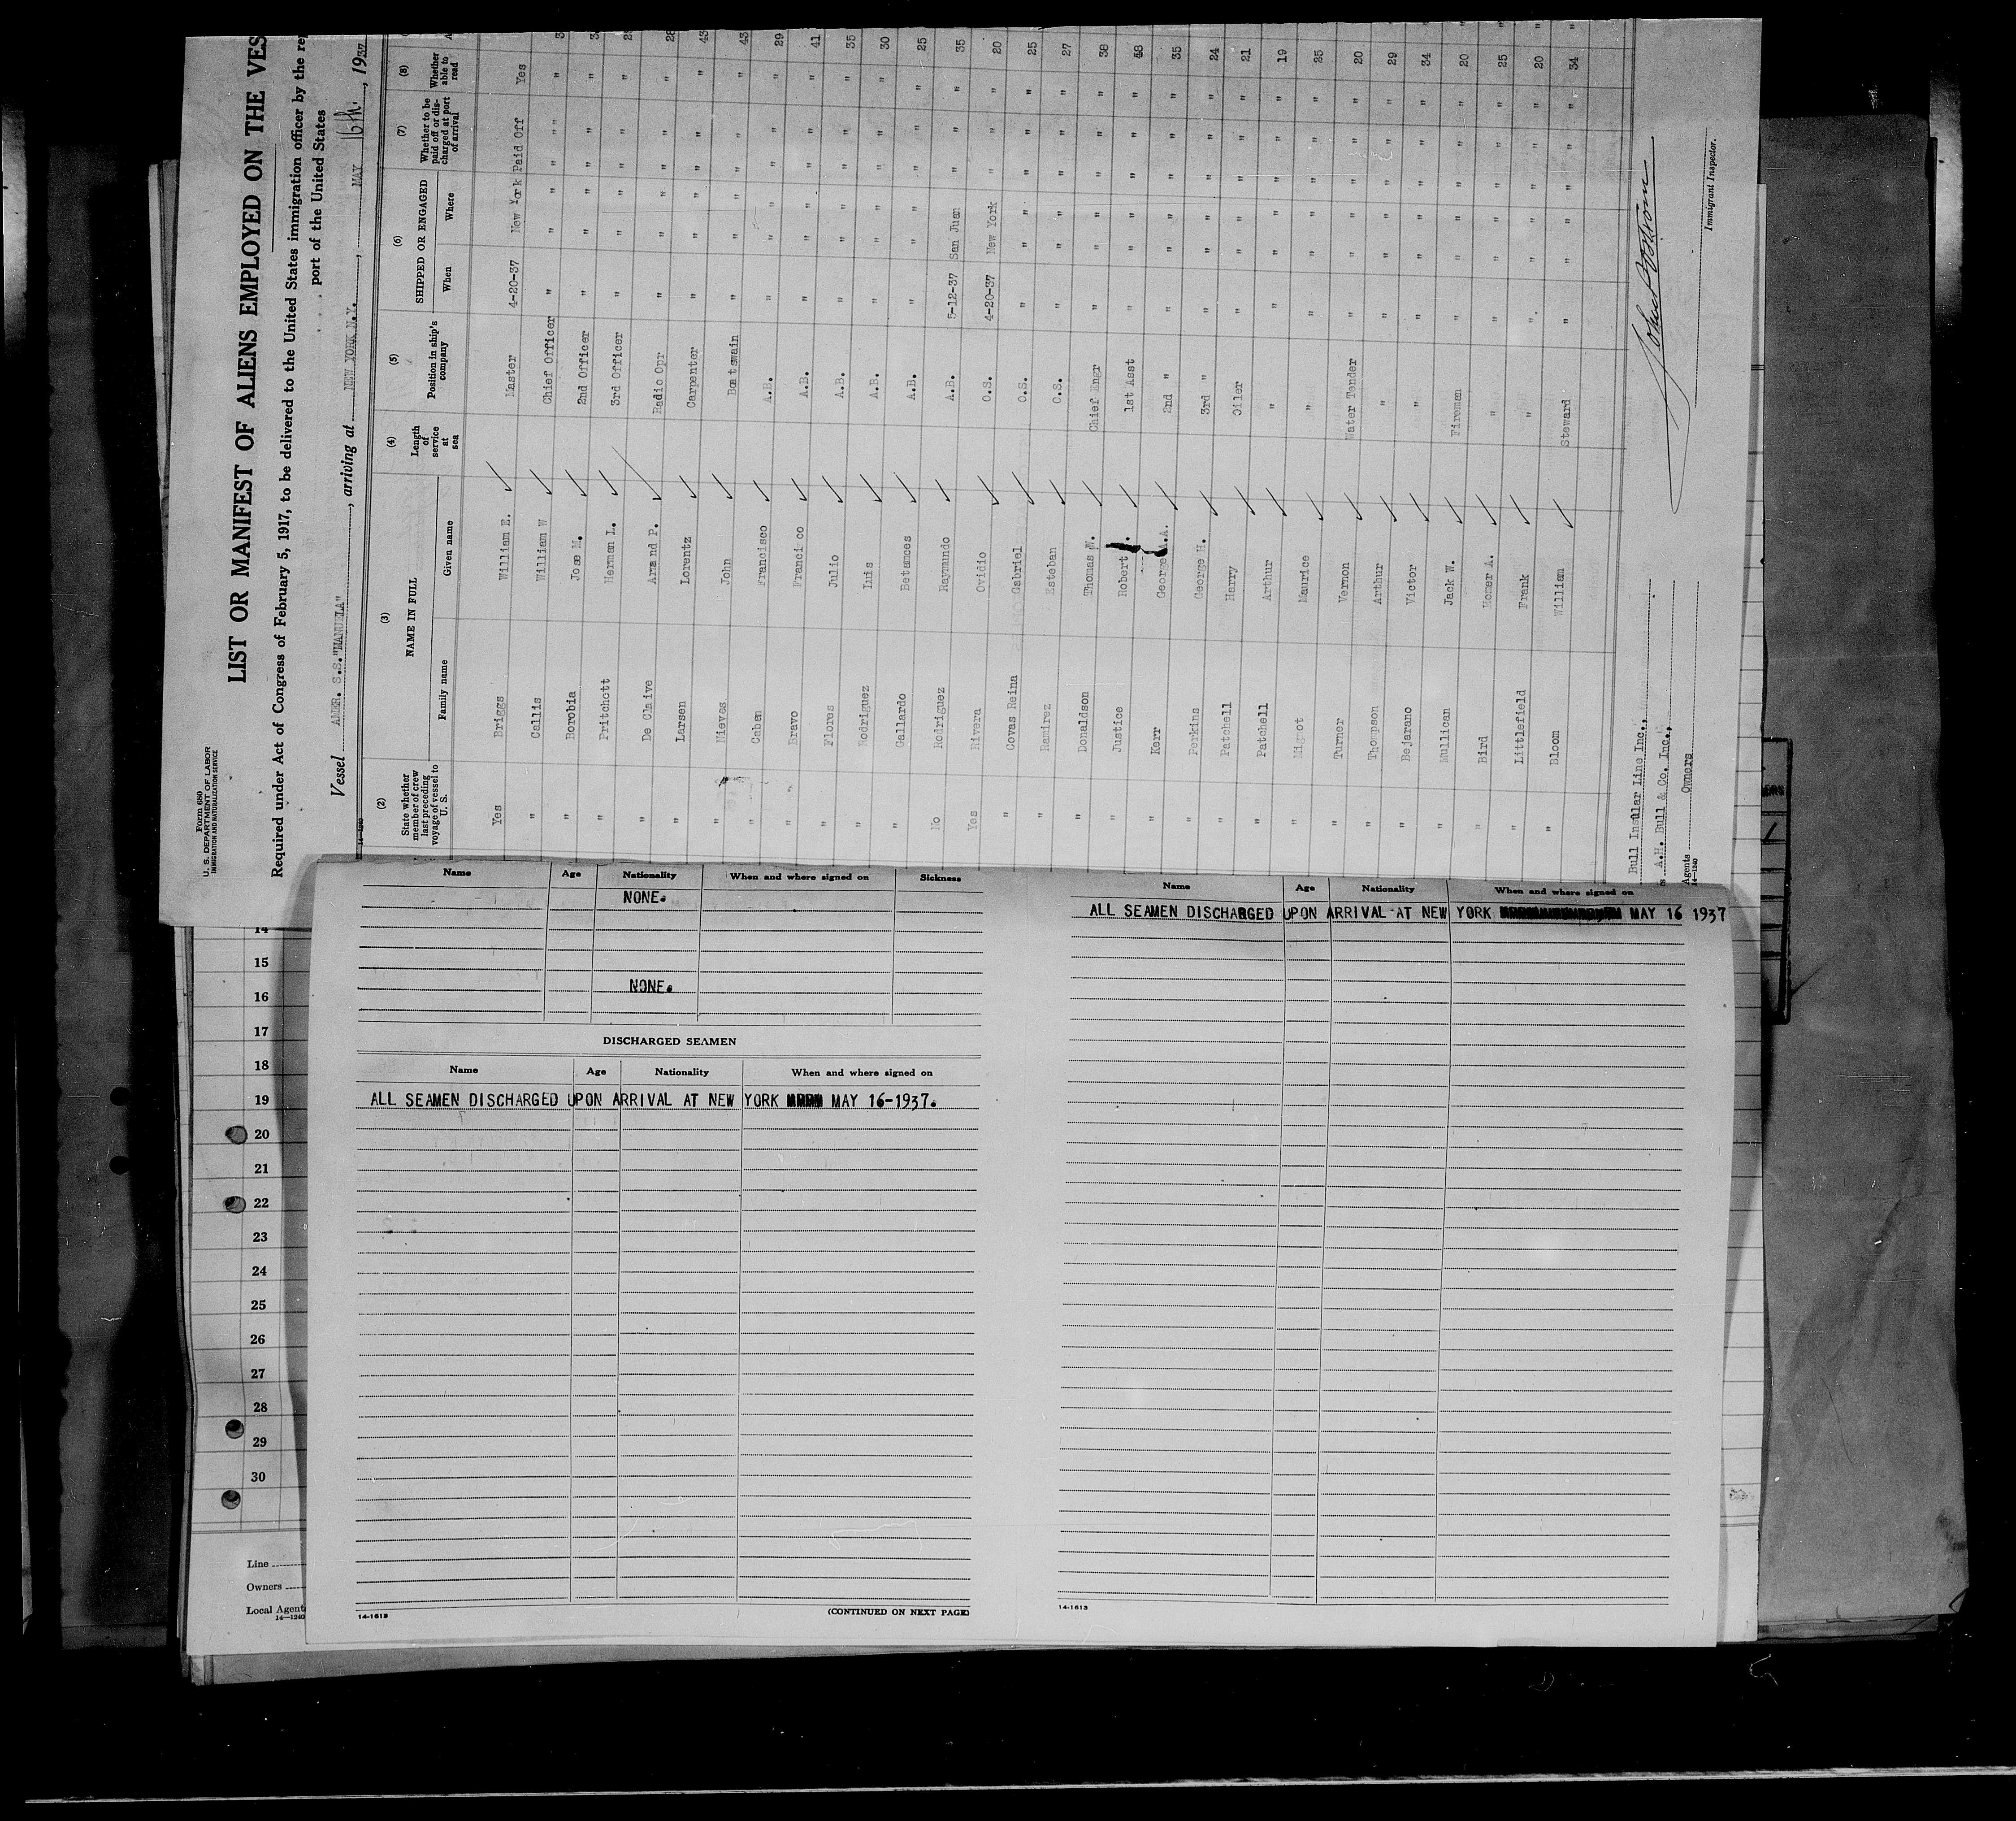 Form 680
U. S. DEPARTMENT OF LABOR
IMMIGRATION AND NATURALIZATION SERVICE
LIST OR MANIFEST OF ALIENS EMPLOYED ON THE VES
Required under Act of Congress of February 5, 1917, to be delivered to the United States immigration officer by the rep
port of the United States
Vessel AMER. S.S."MANUELA", arriving at NEW YORK N.Y., MAY 16th, 1937
14-1240
(2) (3) (4) (5) (6) (7) (8)
State whether member of crew last preceding voyage of vessel to U. S.
NAME IN FULL
Family name Given name
Length of service at sea
Position in ship's company
SHIPPED OR ENGAGED
When Where
Whether to be paid off or discharged at port of arrival
Whether able to read
Yes Briggs William E. Master 4-20-37 New York Paid Off Yes
" Callis William W Chief Officer " " " " "
" Borobia Jose M. 2nd Officer " " " " "
" Pritchott Herman L. 3rd Officer " " " " "
" De Claive Armand P. Radio Opr " " " " " 28
" Larsen Lorentz Carpenter " " " " " 43
" Nieves John Boatswain " " " " " 43
" Caban Francisco A.B. " " " " " 29
" Bravo Franci co A.B. " " " " " 41
" Flores Julio A.B. " " " " " 35
" Rodriguez Luis A.B. " " " " " 30
" Gallardo Betances A.B. " " " " " 25
No Rodriguez Raymundo A.B. 5-12-37 San Juan " " " 35
Yes Rivera Ovidio O.S. 4-20-37 New York " " " 20
" Covas Reina Gabriel O.S. " " " " " 25
" Ramirez Esteban O.S. " " " " " 27
" Donaldson Thomas W. Chief Engr " " " " " 38
" Justice Robert . 1st Asst " " " " " 48
" Kerr George A.A. 2nd " " " " " " 35
" Perkins George H. 3rd " " " " " " 24
" Patchell Harry Oiler " " " " " 21
" Patchell Arthur " " " " " " 19
" Mignot Maurice " " " " " " 25
" Turner Vernon Water Tender " " " " " 20
" Thompson Arthur " " " " " " 29
" Bejarano Victor " " " " " " 34
" Mullican Jack W. Fireman " " " " " 20
" Bird Homer A. " " " " " " 25
" Littlefield Frank " " " " " " 20
" Bloom William Steward " " " " " 34
Bull Insular Line Inc.,
A.H. Bull & Co. Inc.,
Agents Owners
14-1240
Immigrant Inspector.
Name Age Nationality When and where signed on Sickness
NONE.
NONE.
DISCHARGED SEAMEN
Name Age Nationality When and where signed on
ALL SEAMEN DISCHARGED UPON ARRIVAL AT NEW YORK MAY 16-1937.
14-1613
(CONTINUED ON NEXT PAGE)
Name Age Nationality When and where signed on
ALL SEAMEN DISCHARGED UPON ARRIVAL AT NEW YORK MAY 16 1937
14-1613
14
15
16
17
18
19
20
21
22
23
24
25
26
27
28
29
30
Line
Owners
Local Agent
14-1240